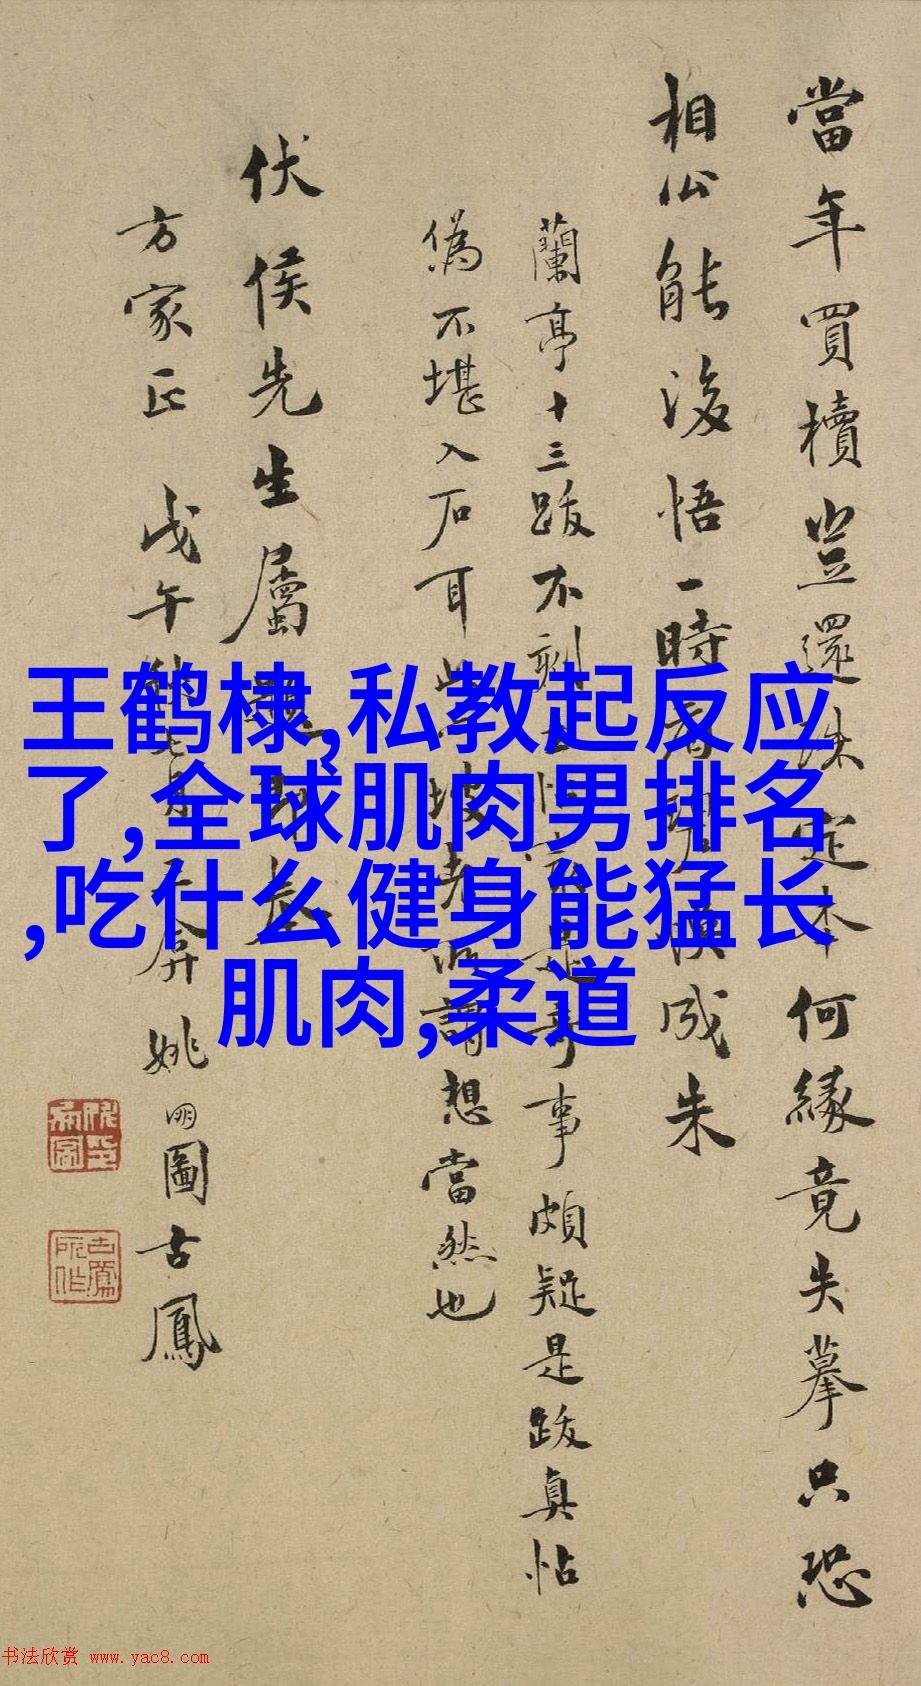 當年買櫝豈還珠定本何緣竟失摹只恐
相公能後悟一時看碧誤成朱
蘭亭十三跋不刻是奇事頗疑是跋真帖
偽不堪入石耳坡老所謂想當然也
伏侯先生屬
方家正 戊午秋七月 姚明圖古鳳
王鹤棣,私教起反应
了,全球肌肉男排名
,吃什么健身能猛长
肌肉,柔道
书法欣赏 www.yac8.com